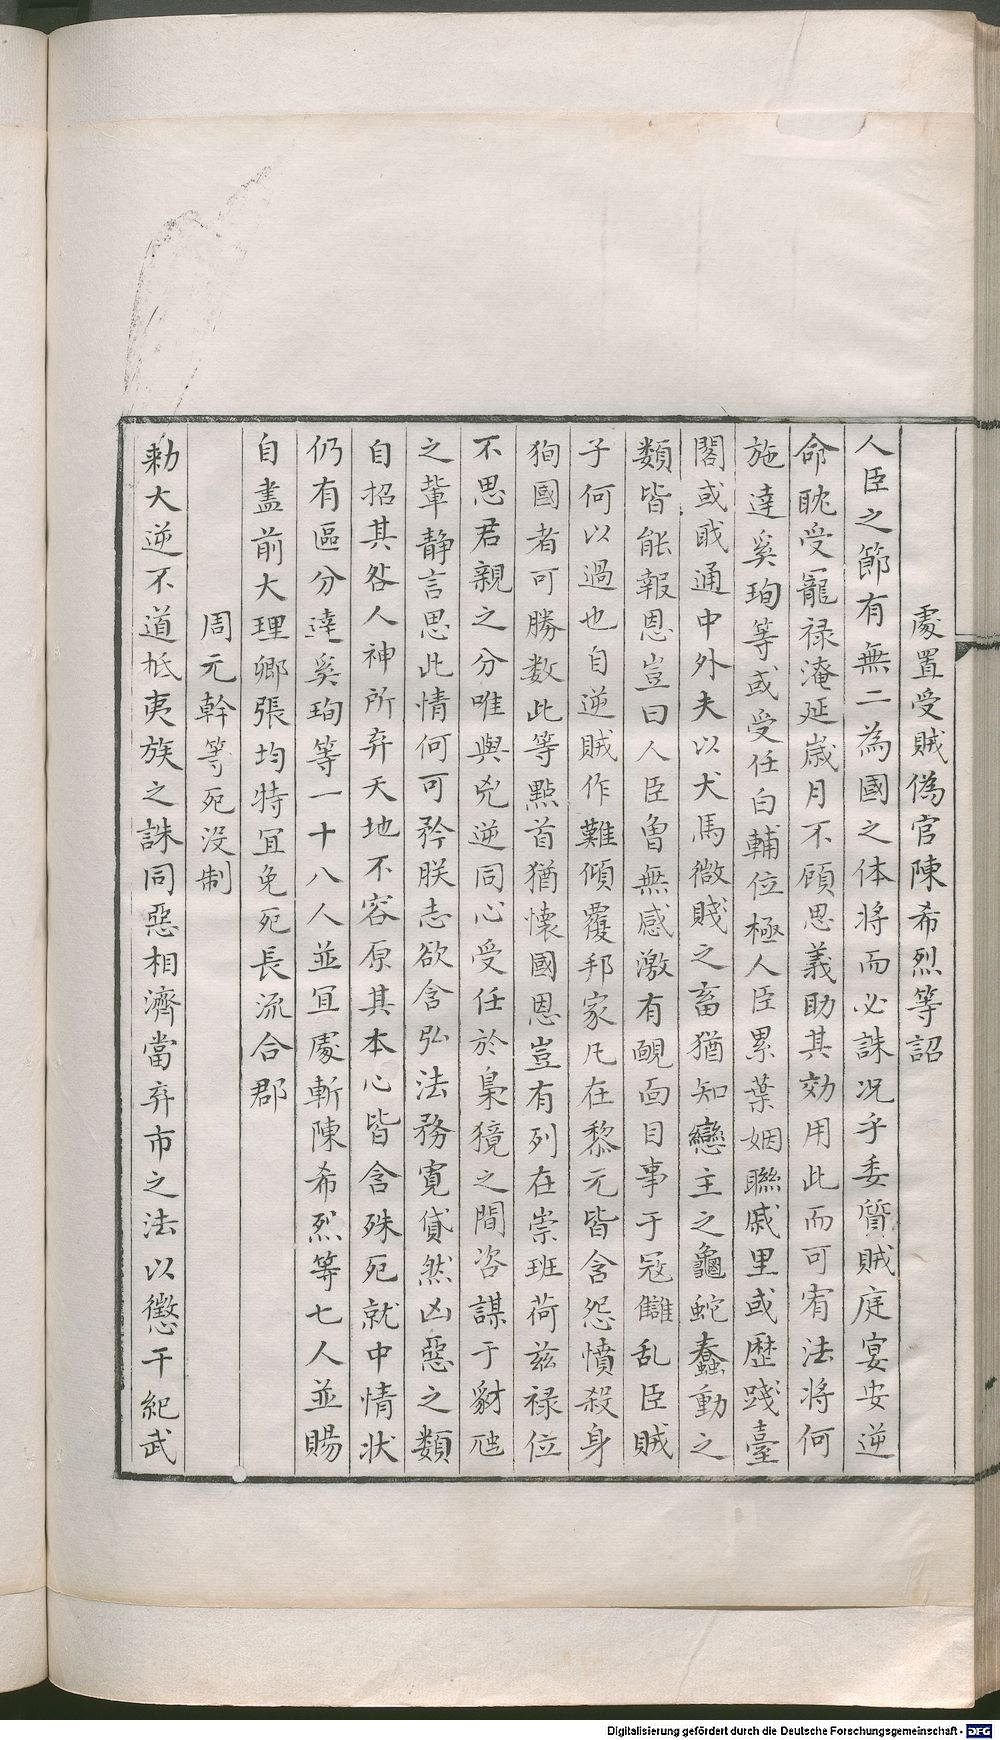 處置受賊偽官陳希烈等詔
人臣之節有無二為國之体將而必誅况乎委質賊庭宴安逆
命耽受寵祿淹延歲月不顧恩義助其効用此而可宥法將何
施達奚珣等或受任白輔位極人臣累葉姻聯戚里或歷踐臺
閣或戢通中外夫以犬馬微賤之畜猶知戀主之龜蛇蠢動之
類皆能報恩豈曰人臣曾無感激有靦面目事于寇讎乱臣賊
子何以過也自逆賊作難傾覆邦家凡在黎元皆含怨憤殺身
狥國者可勝数此等黙首猶懷國恩豈有列在崇班荷兹禄位
不思君親之分唯與兇逆同心受任於梟獍之間咨謀于豺虺
之輩靜言思此情何可矜朕志欲含弘法務寬貸然凶惡之類
自招其咎人神所弃天地不容原其本心皆含殊死就中情状
仍有區分達奚珣等一十八人並宜處斬陳希烈等七人並賜
自盡前大理卿張均特宜免死長流合郡
周元幹等死沒制
勅大逆不道抵夷族之誅同惡相濟當弃市之法以懲干紀武
Digitalisierung gefördert durch die Deutsche Forschungsgemeinschaft - DFG